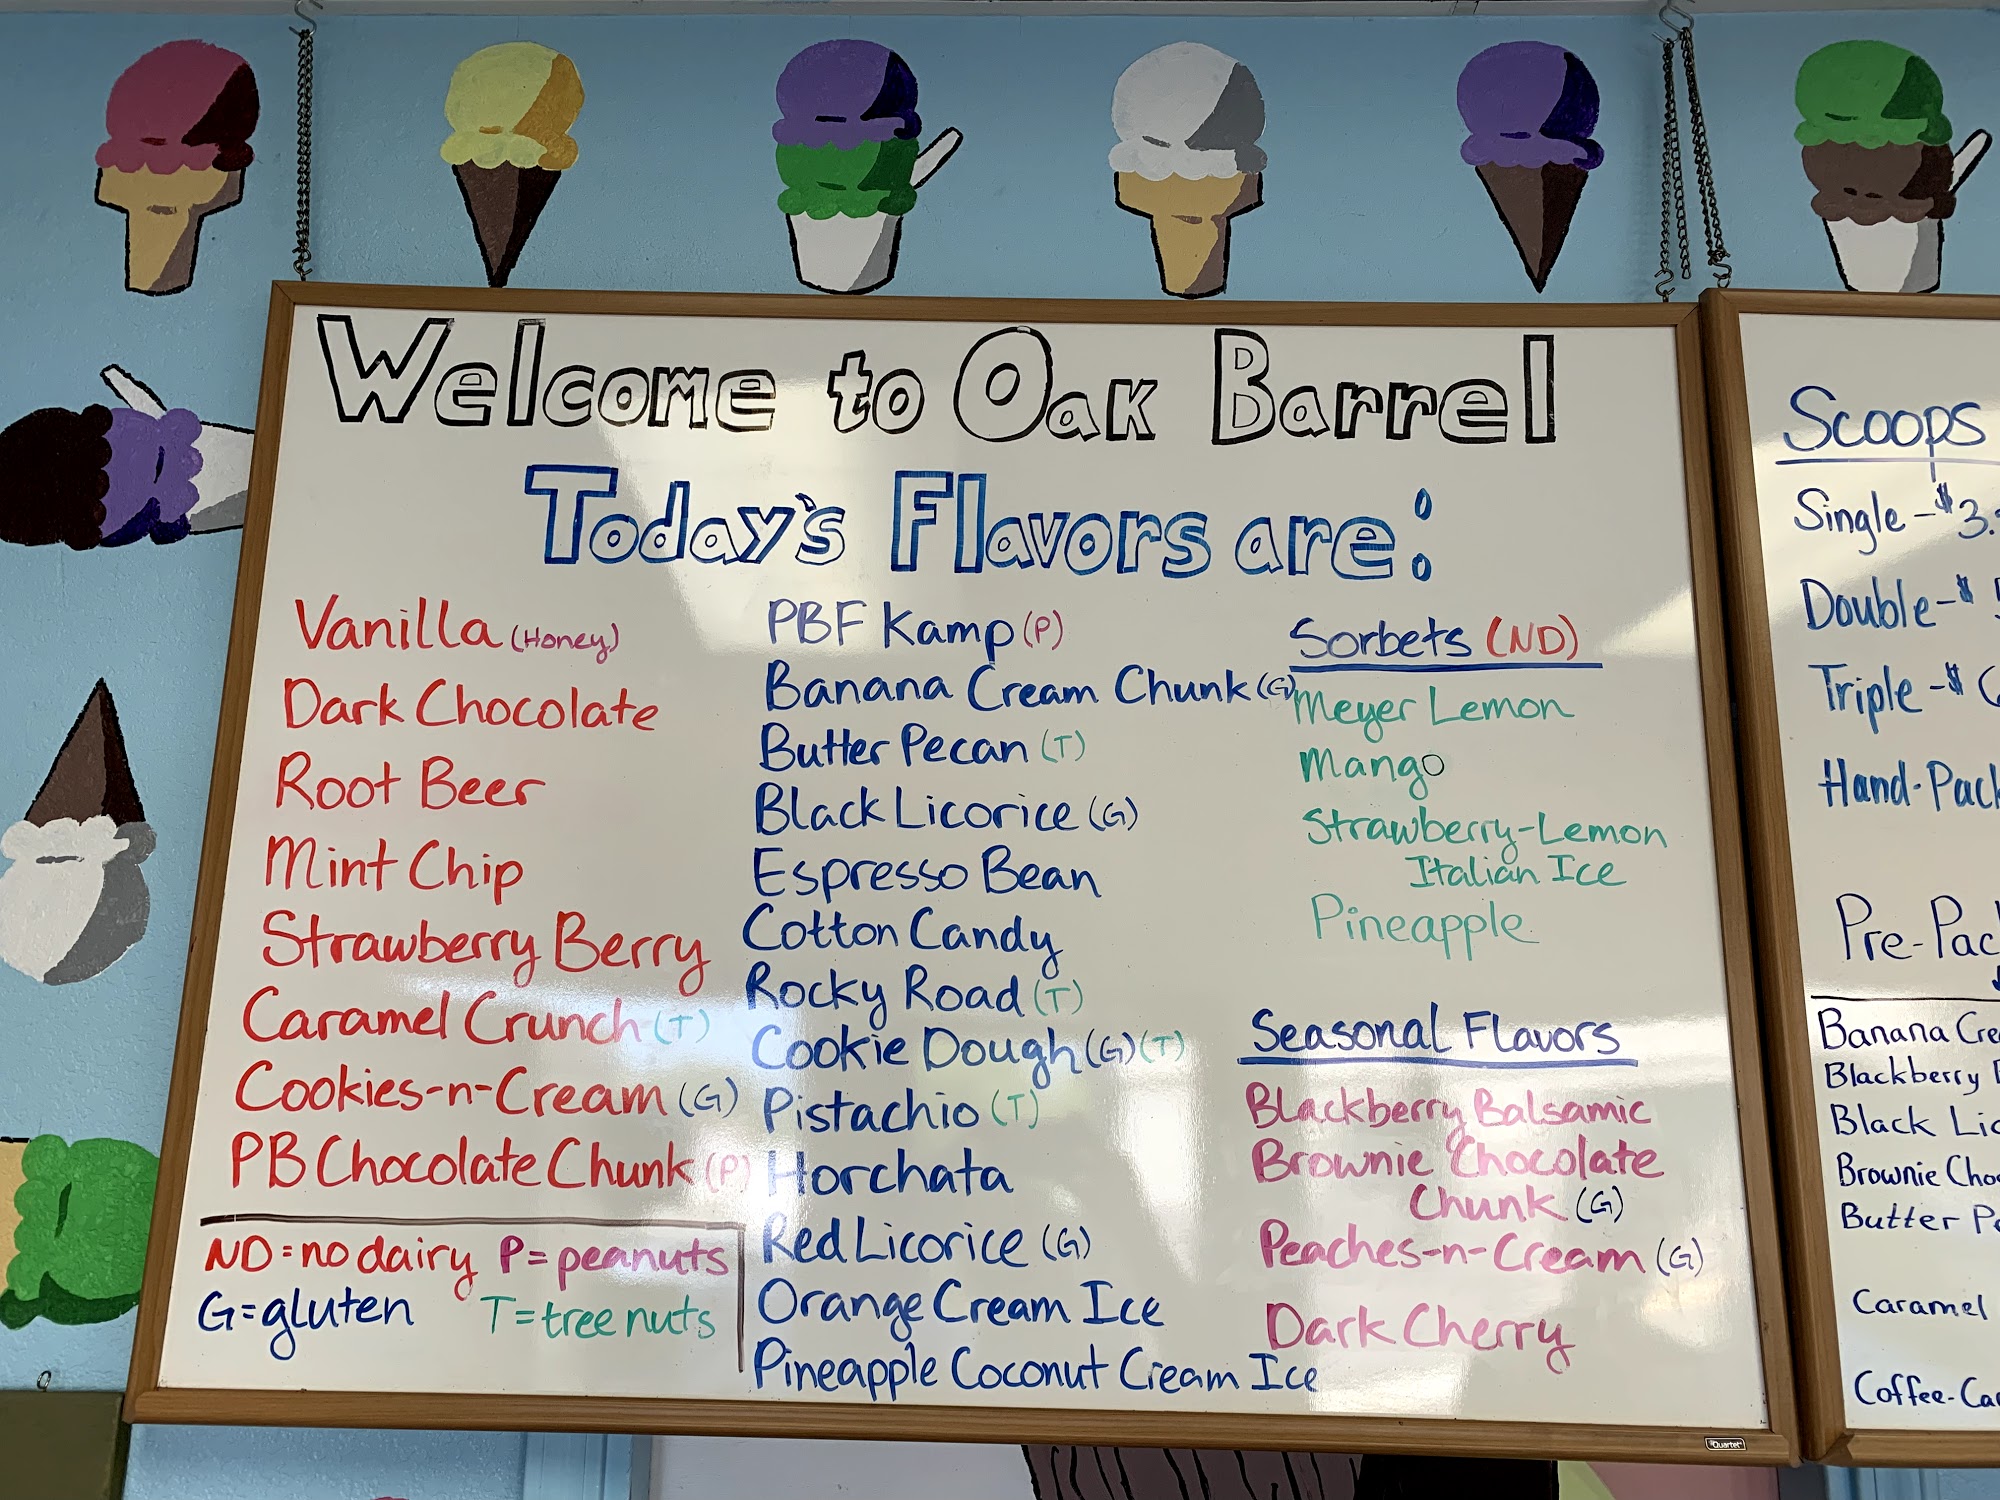 Welcome to Oak Barrel
Today's Flavors are:
Vanilla (Honey)
Dark Chocolate
Root Beer
Mint Chip
Strawberry Berry
Caramel Crunch (T)
Cookies-n-Cream (G)
PB Chocolate Chunk (P)
ND=no dairy P=peanuts
G=gluten T=tree nuts
PBF Kamp (P)
Banana Cream Chunk (G)
Butter Pecan (T)
Black Licorice (G)
Espresso Bean
Cotton Candy
Rocky Road (T)
Cookie Dough (G) (T)
Pistachio (T)
Horchata
Red Licorice (G)
Orange Cream Ice
Pineapple Coconut Cream Ice
Sorbets (ND)
Meyer Lemon
Mango
Strawberry-Lemon
Italian Ice
Pineapple
Seasonal Flavors
Blackberry Balsamic
Brownie Chocolate
Chunk (G)
Peaches-n-Cream (G)
Dark Cherry
Quartet
Scoops
Single - $3.
Double - $
Triple - $
Hand-Pack
Pre-Pac
Banana Cre
Blackberry
Black Lic
Brownie Cho
Butter Pe
Caramel
Coffee-Ca